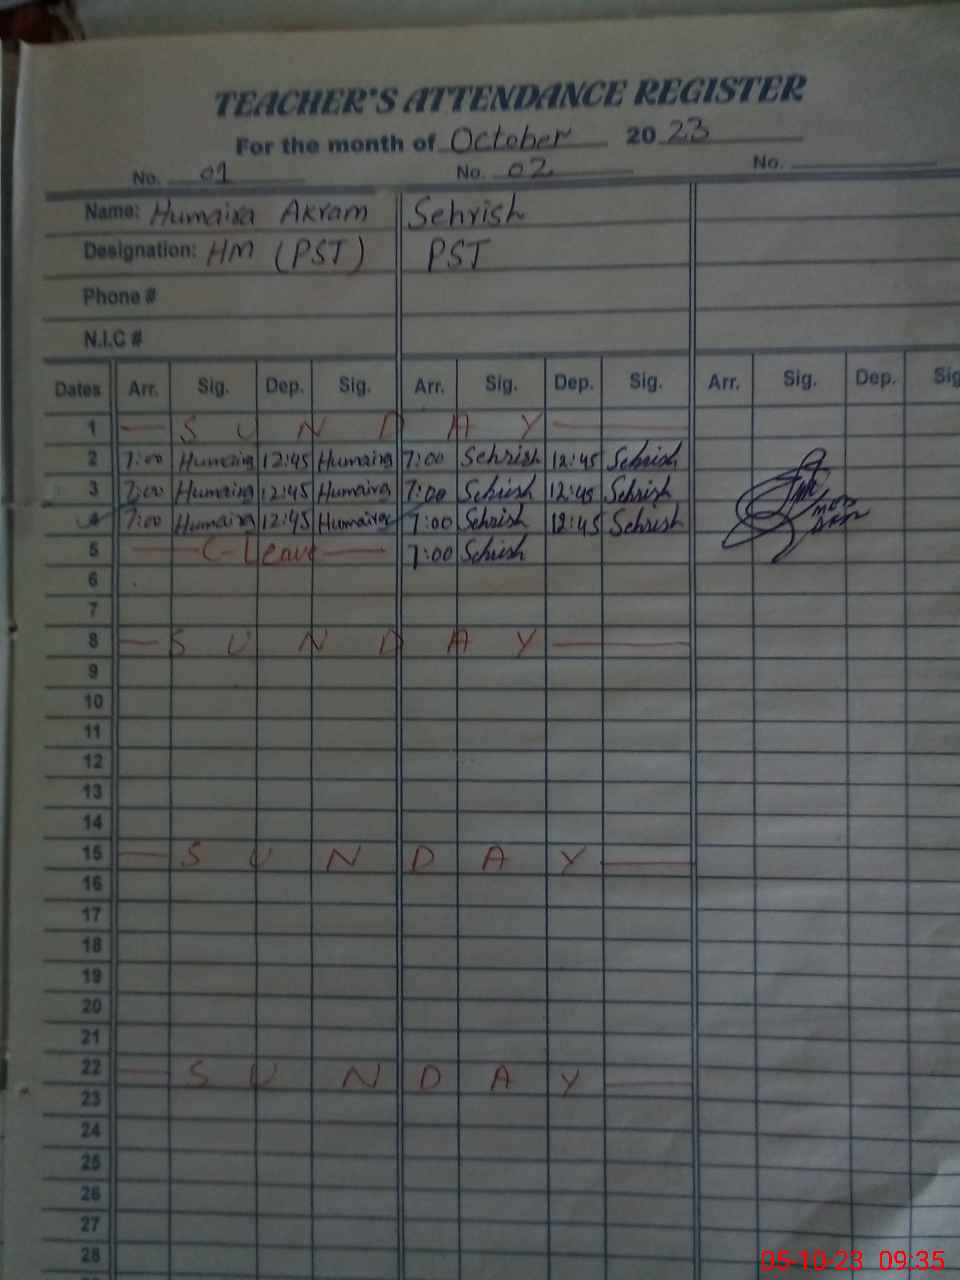 TEACHER'S ATTENDANCE REGISTER
For the month of October 2023
No. 01 No. 02 No.
Name: Humaira Akram Sehrish
Designation: HM (PST) PST
Phone #
N.I.C #
Dates Arr. Sig. Dep. Sig. Arr. Sig. Dep. Sig. Arr. Sig. Dep. Sig
1 SUNDAY
2 7:00 Humaira 12:45 Humaira 7:00 Sehrish 12:45 Sehrish
3 7:00 Humaira 12:45 Humaira 7:00 Sehrish 12:45 Sehrish
4 7:00 Humaira 12:45 Humaira 7:00 Sehrish 12:45 Sehrish
5 C-Leave 7:00 Sehrish
6
7
8 SUNDAY
9
10
11
12
13
14
15 SUNDAY
16
17
18
19
20
21
22 SUNDAY
23
24
25
26
27
28
05-10-23 09:35